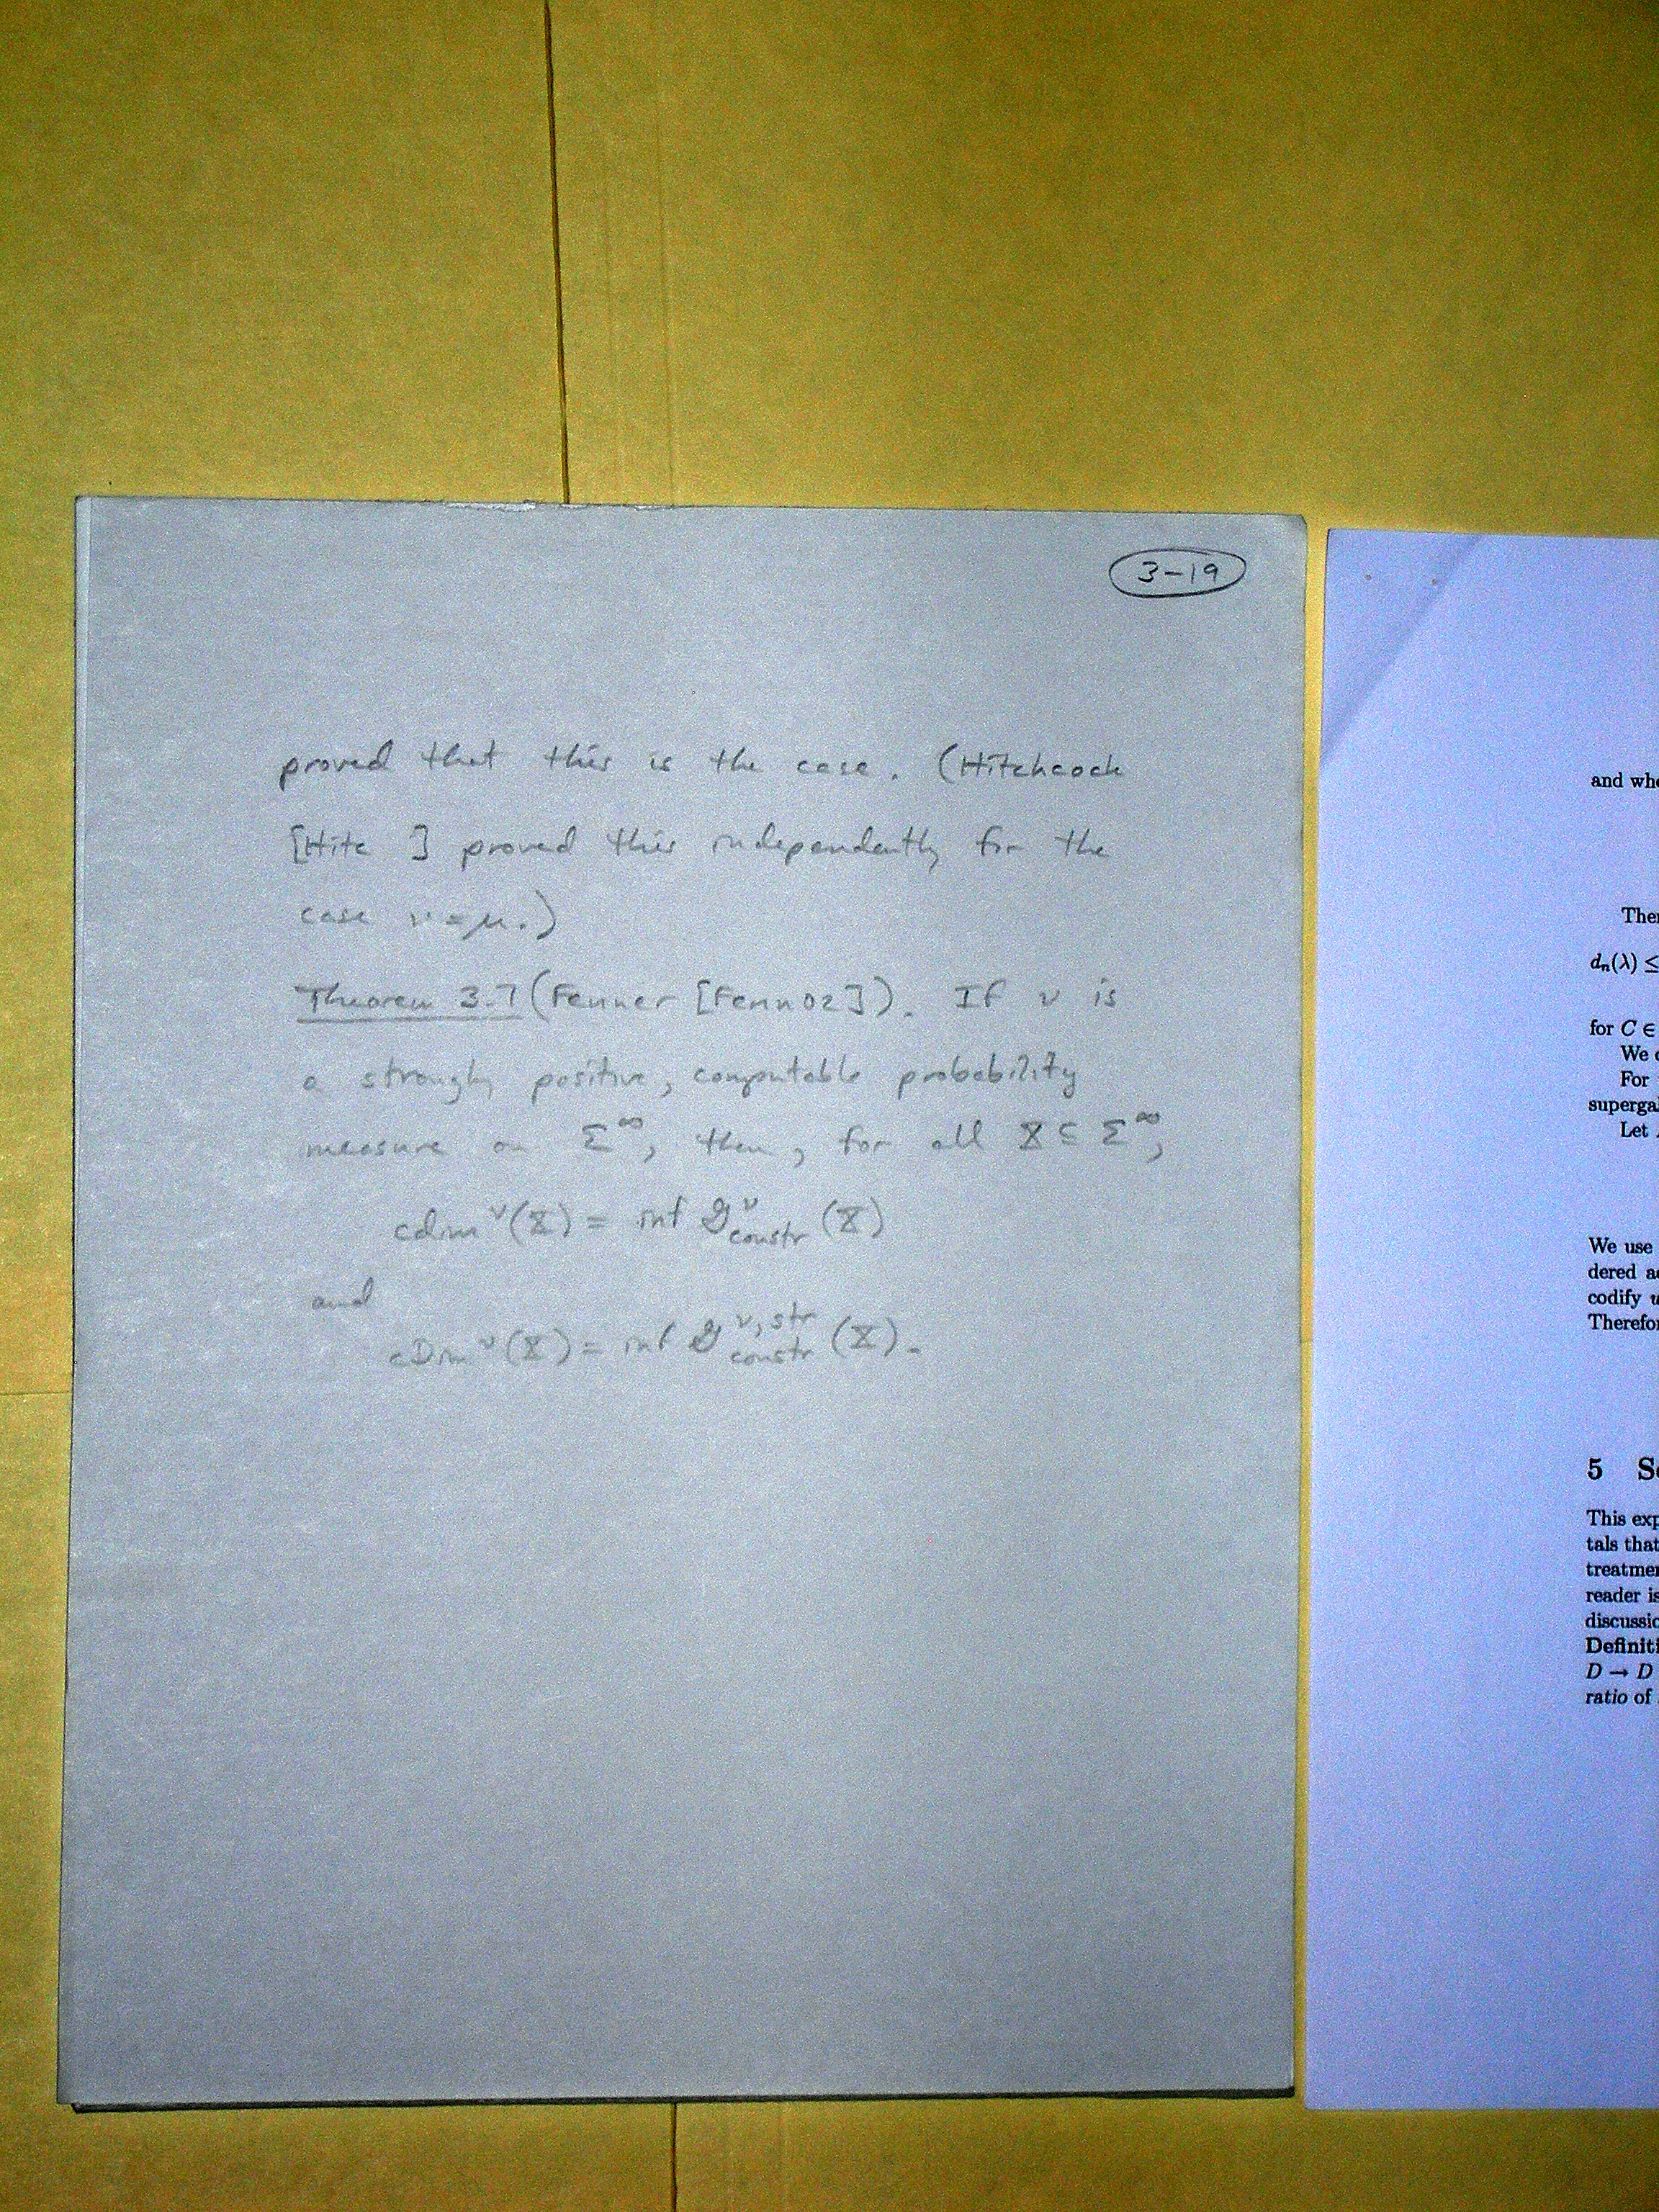 3-19
proved that this is the case. (Hitchcock
[Hitc ] proved this independently for the
case ν = μ.)
Theorem 3.7 (Fenner [Fenn02]). If ν is
a strongly positive, computable probability
measure on Σ^∞, then, for all X ⊆ Σ^∞,
cdim^ν(X) = inf 𝒢^ν_constr(X)
and
cDim^ν(X) = inf 𝒢^{ν, str}_constr(X).
and
d_n(λ) ≤
for C ∈
We
For
superga
Let
We use
dered
codify
5
This
tals that
reader
D → D
ratio of